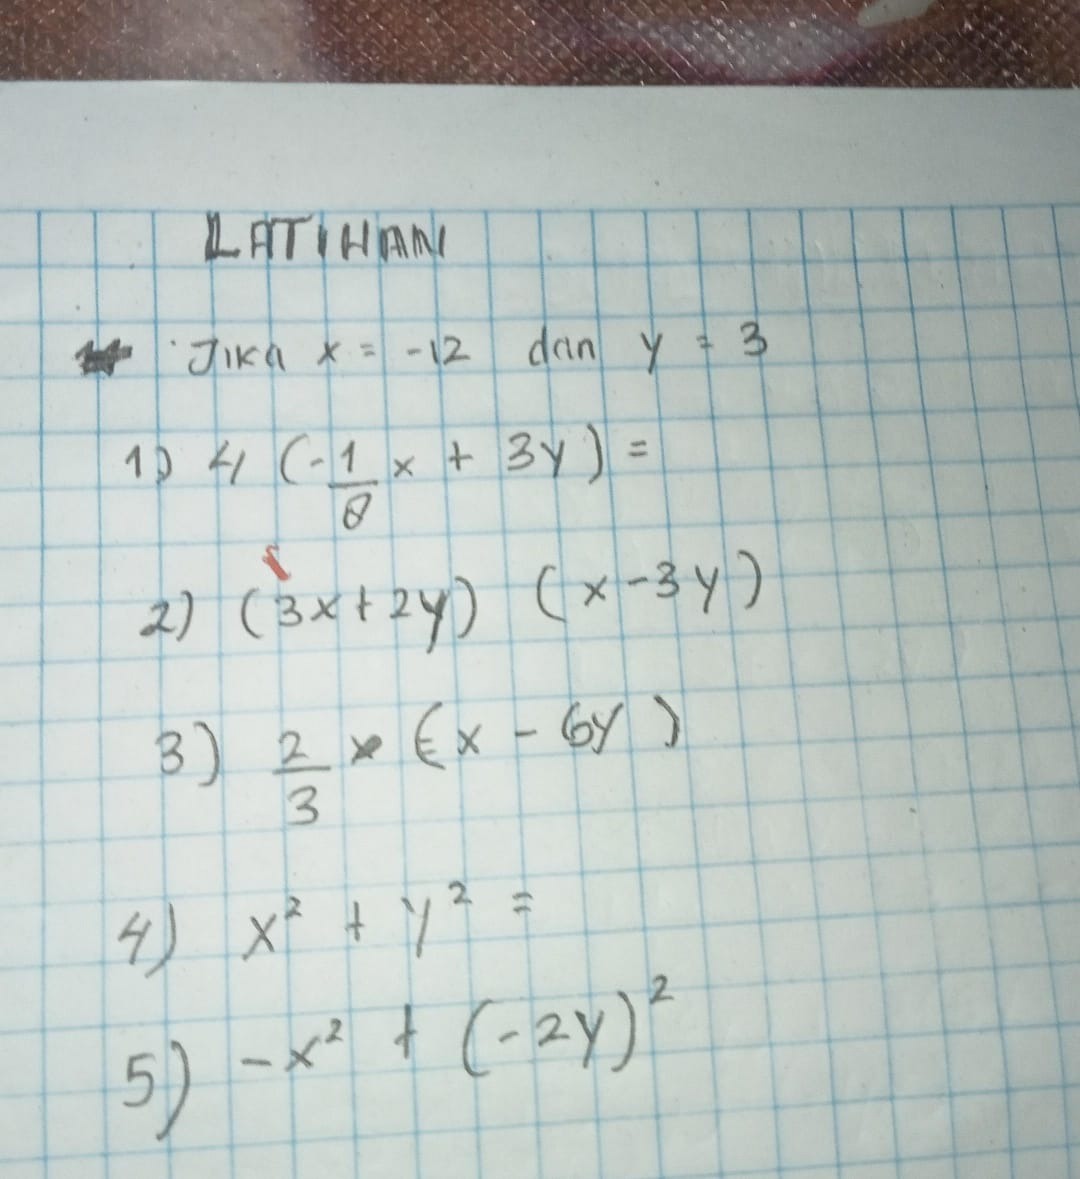 LATIHAN
Jika x = -12 dan y = 3
1) 4 (-1/8 x + 3y) =
2) (3x + 2y) (x - 3y)
3) 2/3 (x - 6y)
4) x² + y² =
5) -x² + (-2y)²